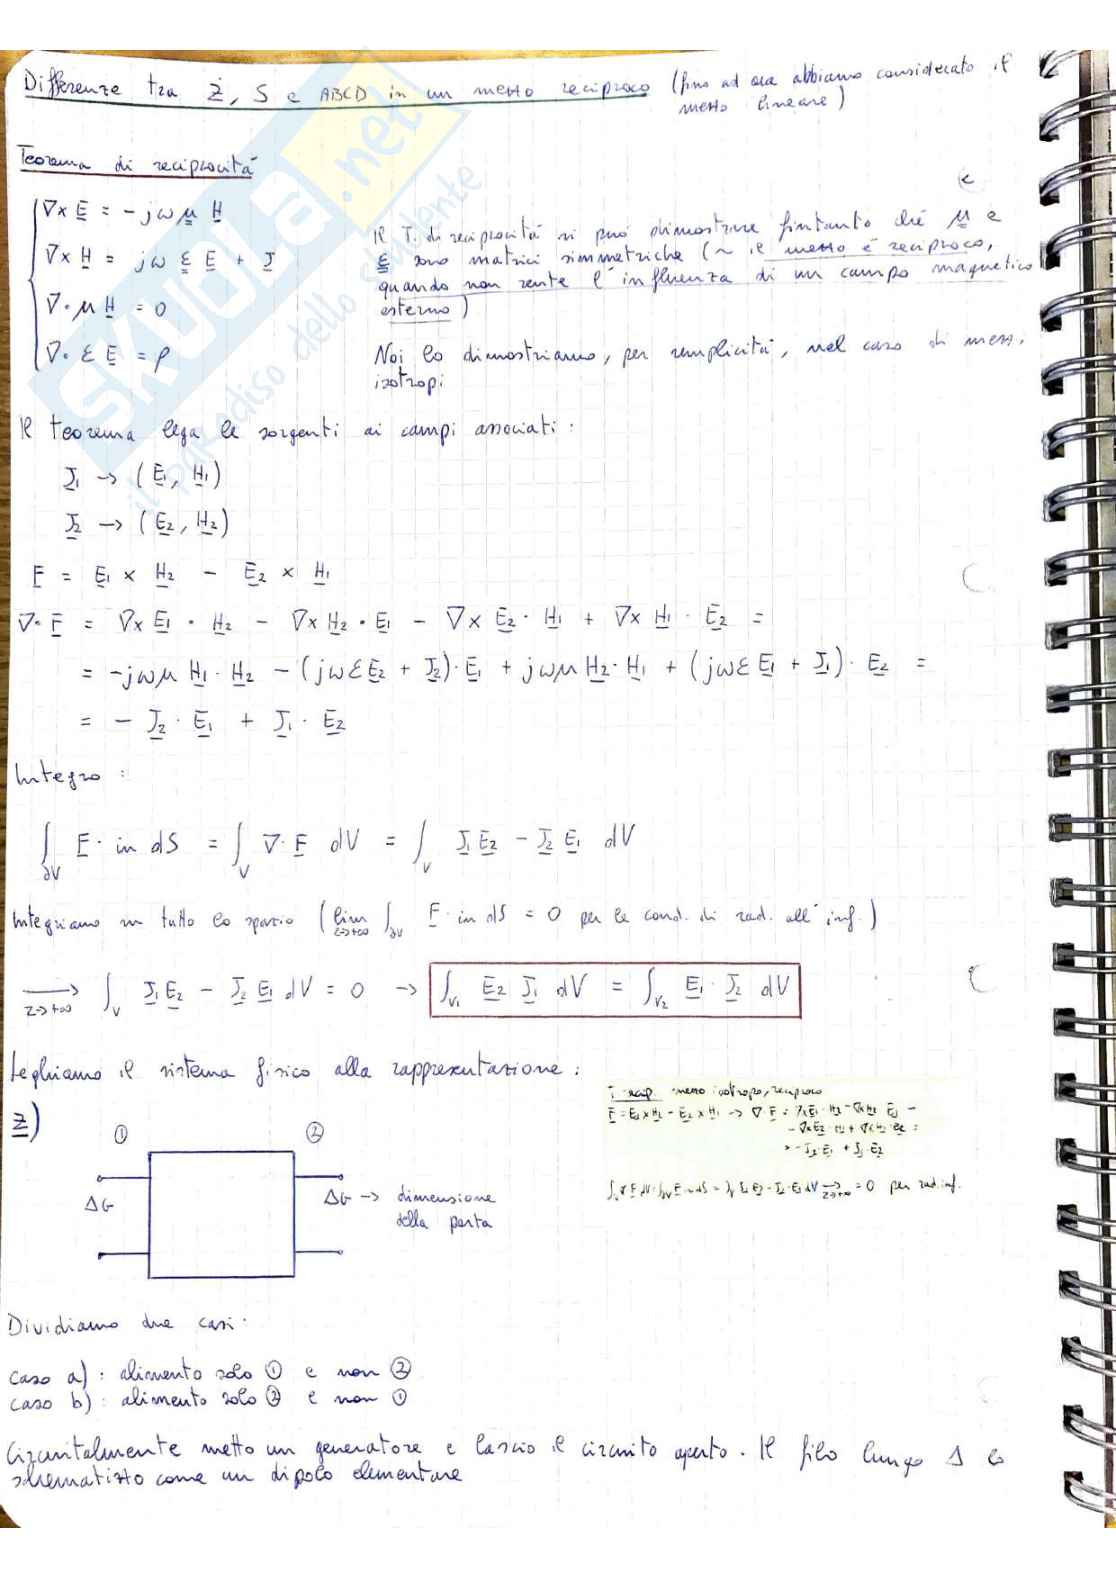 Differenze tra Z, S e ABCD in un mezzo reciproco (fino ad ora abbiamo considerato il
mezzo lineare)
Teorema di reciprocità
∇x E = -jωμ H
∇x H = jω ε E + J
∇·μ H = 0
∇· ε E = ρ
Il T. di reciprocità si può dimostrare fintanto che μ e
ε sono matrici simmetriche (~ il mezzo è reciproco,
quando non sente l'influenza di un campo magnetico
esterno)
Noi lo dimostriamo, per semplicità, nel caso di mezzi
isotropi
Il teorema lega le sorgenti ai campi associati:
J1 -> (E1, H1)
J2 -> (E2, H2)
F = E1 x H2 - E2 x H1
∇· F = ∇x E1 · H2 - ∇x H2 · E1 - ∇x E2 · H1 + ∇x H1 · E2 =
= -jωμ H1 · H2 - (jωε E2 + J2)· E1 + jωμ H2 · H1 + (jωε E1 + J1) · E2 =
= - J2 · E1 + J1 · E2
Integro:
∫∂V F · in dS = ∫V ∇· F dV = ∫V J1 E2 - J2 E1 dV
Integriamo in tutto lo spazio (lim z->+∞ ∫∂V F · in dS = 0 per le cond. di rad. all' inf.)
z->+∞ ∫V J1 E2 - J2 E1 dV = 0 -> ∫V1 E2 J1 dV = ∫V2 E1 · J2 dV
Leghiamo il sistema fisico alla rappresentazione:
T recip. mezzo isotropo, reciproco
F = E1 x H2 - E2 x H1 -> ∇· F = ∇x E1 · H2 - ∇x H2 E1 -
- ∇x E2 · H1 + ∇x H1 · E2 =
= - J2 · E1 + J1 · E2
z->+∞ = 0 per rad inf.
Z)
① ②
ΔG ΔG -> dimensione
della porta
Dividiamo due casi:
caso a) : alimento solo ① e non ②
caso b) : alimento solo ② e non ①
Circuitalmente metto un generatore e lascio il circuito aperto. Il filo lungo Δ lo
schematizzo come un dipolo elementare
SKUOLA.net
il paradiso dello studente